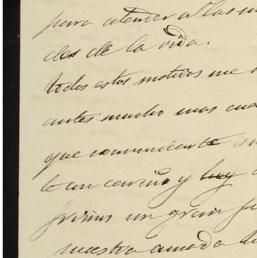 para atender a las
des de la vida.
todos estos motivos me
antes mucho mas
que comunicarte
te un cariño y
un gran
nuestra amada